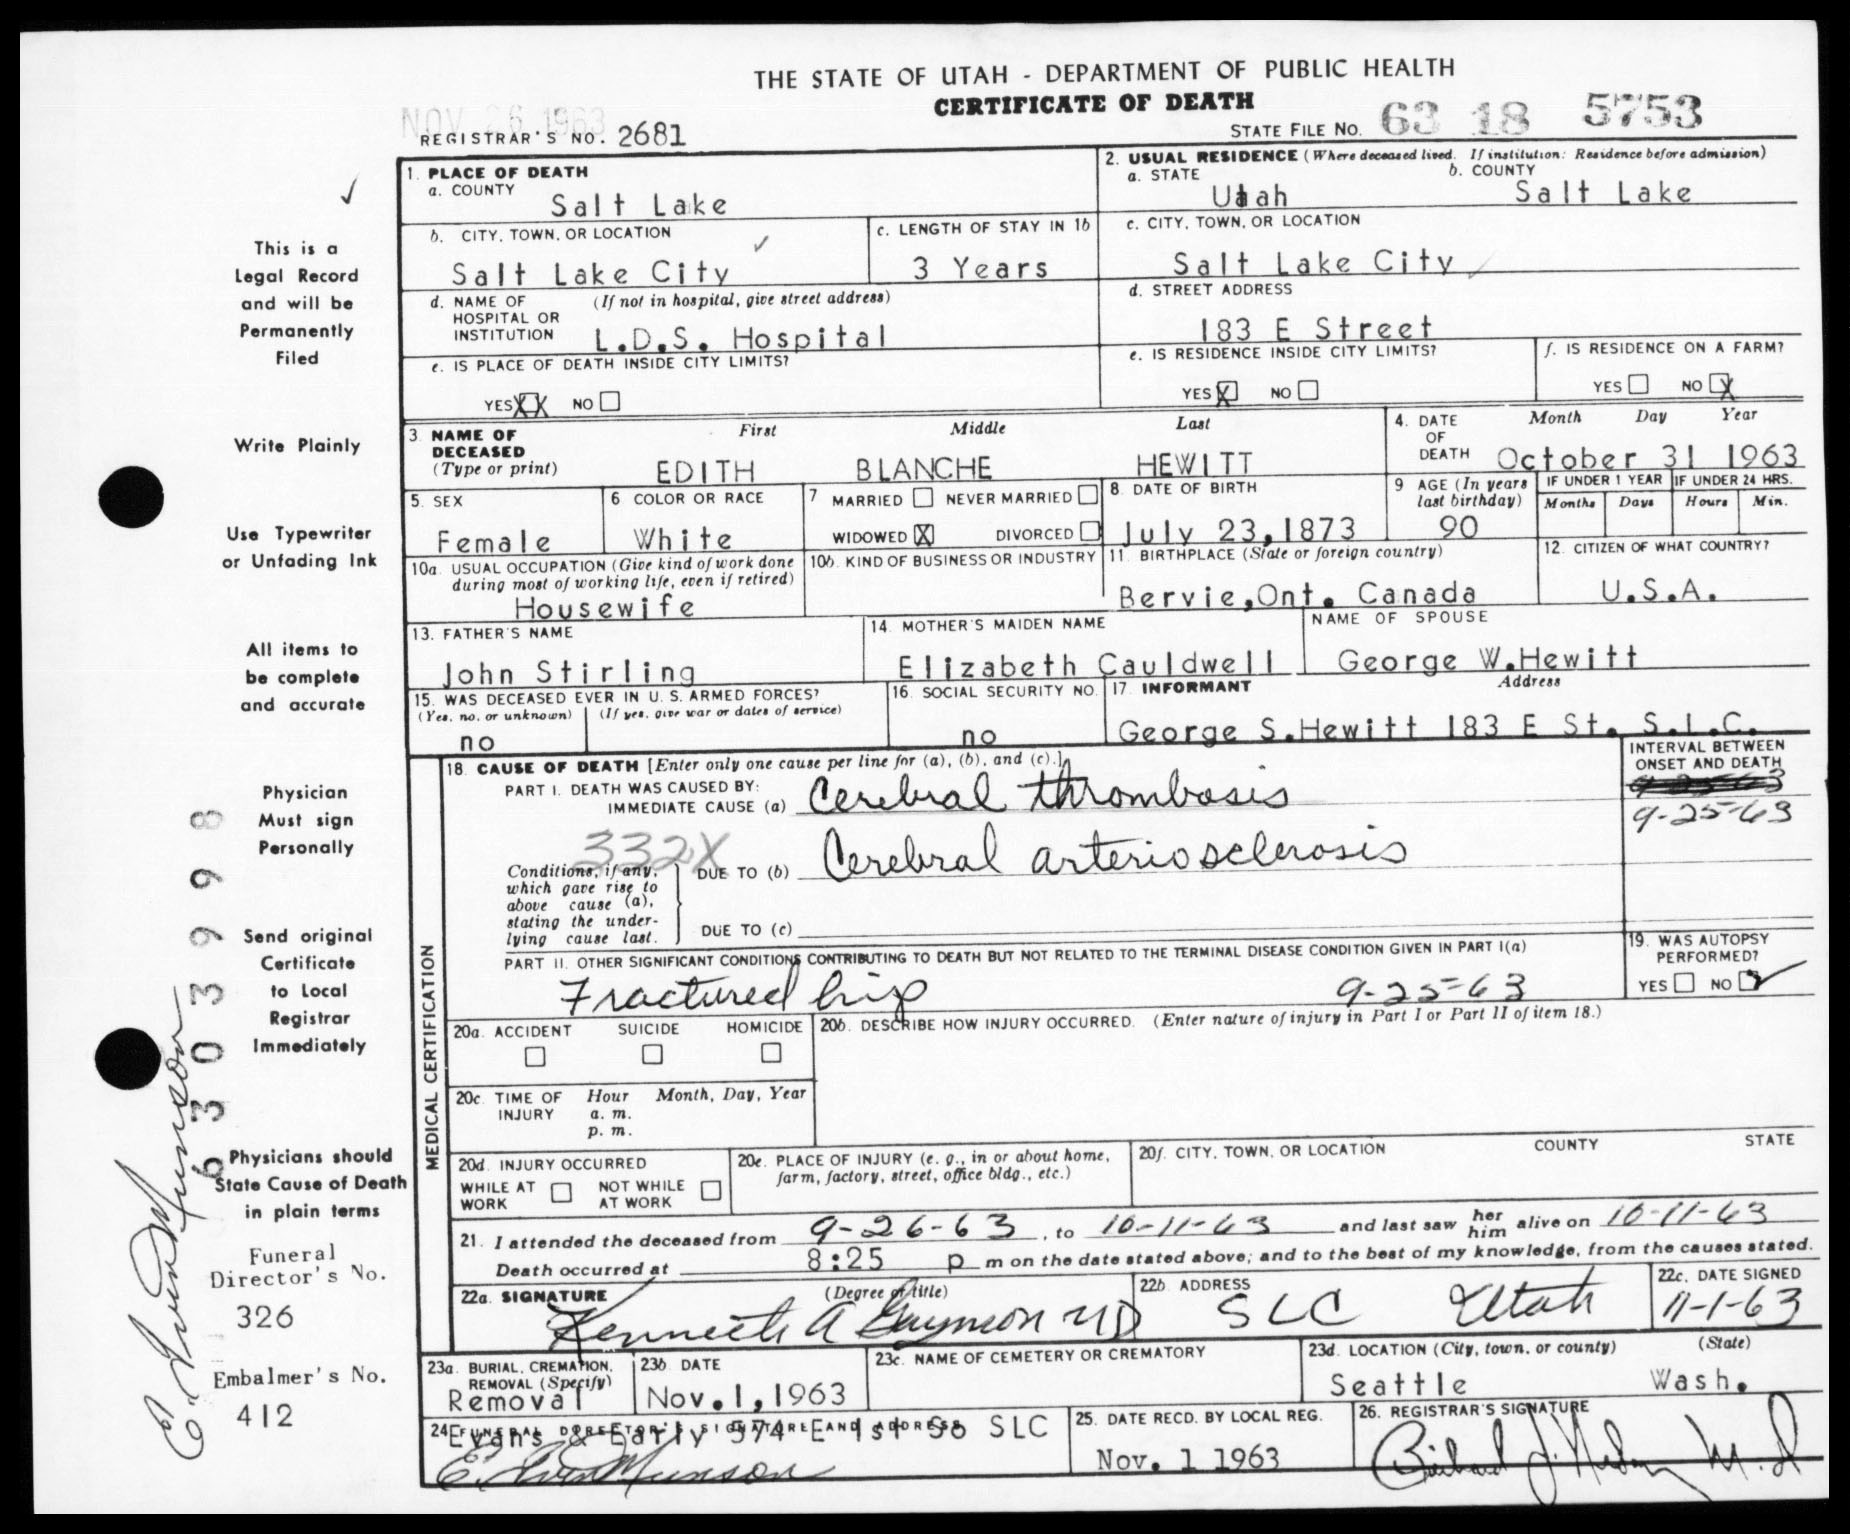 THE STATE OF UTAH - DEPARTMENT OF PUBLIC HEALTH
CERTIFICATE OF DEATH
NOV 26 1963
REGISTRAR'S NO. 2681
STATE FILE NO. 63 18 5753
1. PLACE OF DEATH
a. COUNTY
Salt Lake
2. USUAL RESIDENCE (Where deceased lived. If institution: Residence before admission)
a. STATE
Utah
b. COUNTY
Salt Lake
b. CITY, TOWN, OR LOCATION
Salt Lake City
c. LENGTH OF STAY IN 1b
3 Years
c. CITY, TOWN, OR LOCATION
Salt Lake City
d. NAME OF HOSPITAL OR INSTITUTION
(If not in hospital, give street address)
L.D.S. Hospital
d. STREET ADDRESS
183 E Street
e. IS PLACE OF DEATH INSIDE CITY LIMITS?
YES XX NO
e. IS RESIDENCE INSIDE CITY LIMITS?
YES X NO
f. IS RESIDENCE ON A FARM?
YES NO X
3. NAME OF DECEASED (Type or print)
First Middle Last
EDITH BLANCHE HEWITT
4. DATE OF DEATH
Month Day Year
October 31 1963
5. SEX
Female
6 COLOR OR RACE
White
7 MARRIED NEVER MARRIED
WIDOWED X DIVORCED
8. DATE OF BIRTH
July 23,1873
9 AGE (In years last birthday)
90
IF UNDER 1 YEAR
Months Days
IF UNDER 24 HRS.
Hours Min.
10a. USUAL OCCUPATION (Give kind of work done during most of working life, even if retired)
Housewife
10b. KIND OF BUSINESS OR INDUSTRY
11. BIRTHPLACE (State or foreign country)
Bervie,Ont. Canada
12. CITIZEN OF WHAT COUNTRY?
U.S.A.
13. FATHER'S NAME
John Stirling
14. MOTHER'S MAIDEN NAME
Elizabeth Cauldwell
NAME OF SPOUSE
George W.Hewitt
15. WAS DECEASED EVER IN U. S. ARMED FORCES?
(Yes, no, or unknown) (If yes, give war or dates of service)
no
16. SOCIAL SECURITY NO.
no
17. INFORMANT Address
George S.Hewitt 183 E St. S.L.C.
MEDICAL CERTIFICATION
18. CAUSE OF DEATH [Enter only one cause per line for (a), (b), and (c).]
INTERVAL BETWEEN ONSET AND DEATH
PART I. DEATH WAS CAUSED BY:
IMMEDIATE CAUSE (a) Cerebral thrombosis
9-25-63
332X
Conditions, if any, which gave rise to above cause (a), stating the underlying cause last.
DUE TO (b) Cerebral arteriosclerosis
DUE TO (c)
PART II. OTHER SIGNIFICANT CONDITIONS CONTRIBUTING TO DEATH BUT NOT RELATED TO THE TERMINAL DISEASE CONDITION GIVEN IN PART I(a)
Fractured hip 9-25-63
19. WAS AUTOPSY PERFORMED?
YES NO ✓
20a. ACCIDENT SUICIDE HOMICIDE
20b. DESCRIBE HOW INJURY OCCURRED. (Enter nature of injury in Part I or Part II of item 18.)
20c. TIME OF INJURY
Hour Month, Day, Year
a. m.
p. m.
20d. INJURY OCCURRED
WHILE AT WORK NOT WHILE AT WORK
20e. PLACE OF INJURY (e. g., in or about home, farm, factory, street, office bldg., etc.)
20f. CITY, TOWN, OR LOCATION COUNTY STATE
21. I attended the deceased from 9-26-63, to 10-11-63 and last saw her him alive on 10-11-63
Death occurred at 8:25 p m on the date stated above; and to the best of my knowledge, from the causes stated.
22a. SIGNATURE (Degree or title)
Kenneth A Gaymon MD
22b. ADDRESS
SLC Utah
22c. DATE SIGNED
11-1-63
23a. BURIAL, CREMATION, REMOVAL (Specify)
Removal
23b. DATE
Nov.1,1963
23c. NAME OF CEMETERY OR CREMATORY
23d. LOCATION (City, town, or county) (State)
Seattle Wash.
24 FUNERAL DIRECTOR'S SIGNATURE AND ADDRESS
Evans & Early 574 E 1st So SLC
E. Iven Munson
25. DATE RECD. BY LOCAL REG.
Nov. 1 1963
26. REGISTRAR'S SIGNATURE
M.D
This is a
Legal Record
and will be
Permanently
Filed
Write Plainly
Use Typewriter
or Unfading Ink
All items to
be complete
and accurate
Physician
Must sign
Personally
Send original
Certificate
to Local
Registrar
Immediately
Physicians should
State Cause of Death
in plain terms
Funeral
Director's No.
326
Embalmer's No.
412
6303998
E. Iven Munson